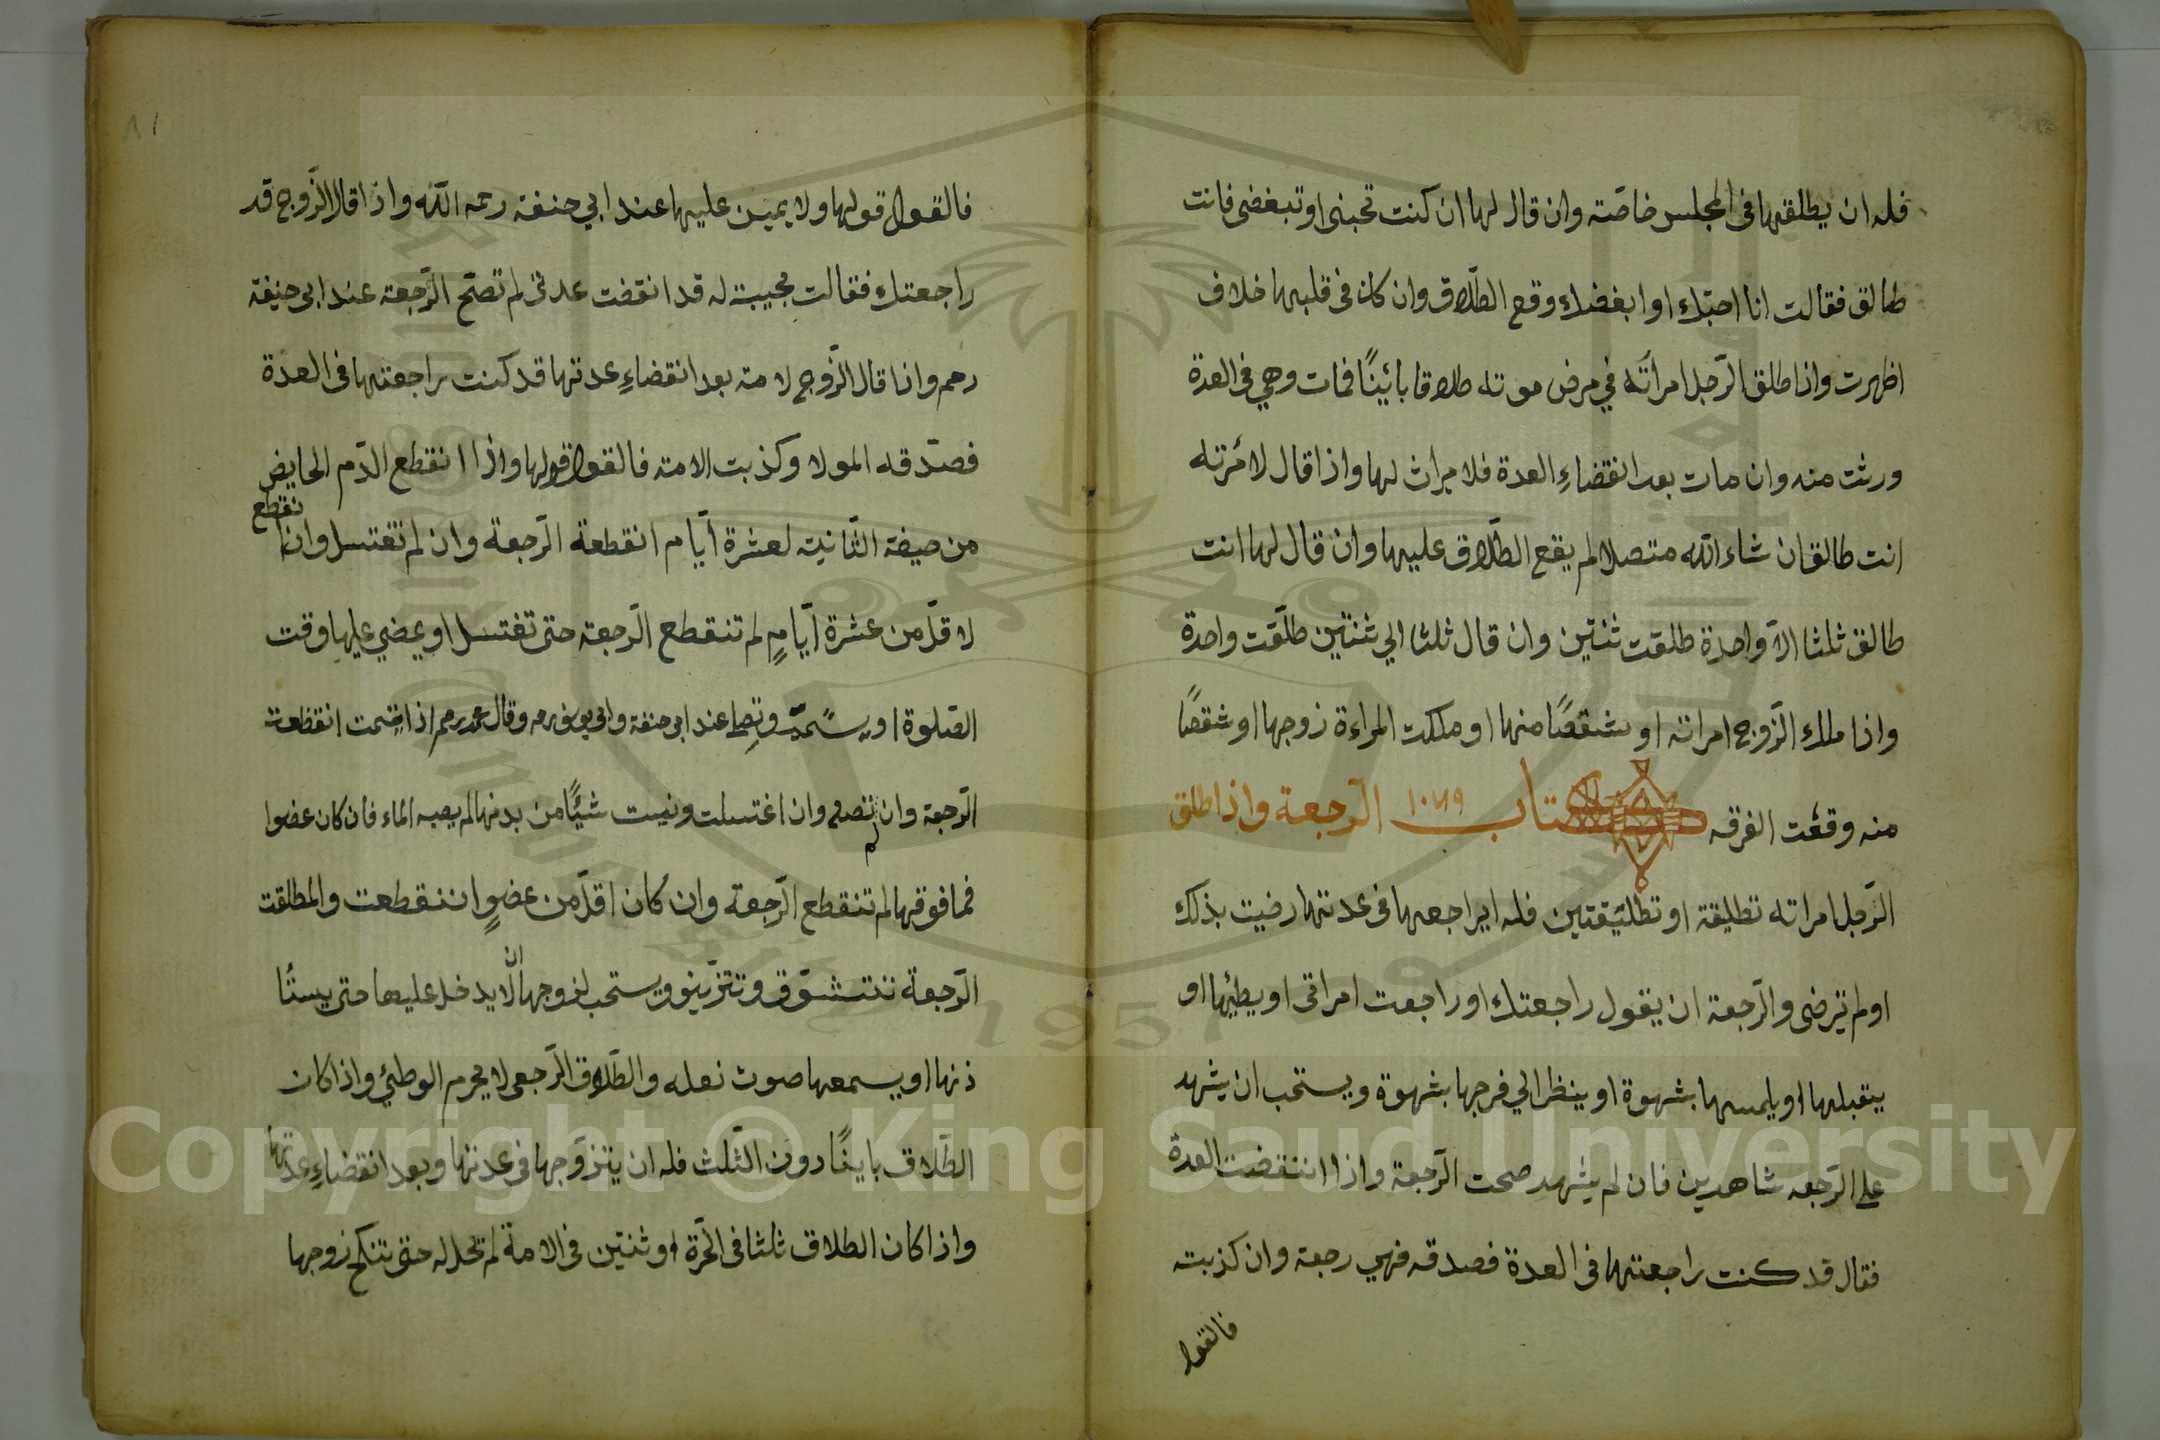 فله ان يطلقها فى المجلس خاصّته وان قال لها ان كنت تحبنى او تبغضى فانت
طالق فقالت انا احبّك او ابغضك وقع الطّلاق وان كان فى قلبها خلاف
اظهرت واذا طلق الرّجل امرأته في مرض موته طلاقا بائينًا فمات وهي فى العدة
ورثت منه وان مات بعد انقضاءِ العدة فلا ميراث لها واذا قال لامرته
انت طالق ان شاء الله متصلا لم يقع الطّلاق عليها وان قال لها انت
طالق ثلثا الّا واحدة طلقت ثنتين وان قال ثلثا الي ثنتين طلّقت واحدة
واذا ملك الزّوج امراته او شقصًا منها او ملكت المراءة زوجها او شقصًا
منه وقعت الفرقه كتاب ١٠٧٩ الرّجعة واذا طلق
الرّجل امراته تطليقة او تطليقتين فله ايراجعها فى عدتها رضيت بذلك
او لم ترضى والرّجعة ان يقول راجعتك او راجعت امراتى او يطيئها او
يتقبلها او يلمسها بشهوة او ينظر الي فرجها بشهوة ويستحب ان يشهد
على الرّجعه شاهدين فان لم يشهد صحت الرّجعة واذا انتقضت العدة
فقال قد كنت راجعتها فى العدة فصدقه فهي رجعة وان كذبته
فالقول
٨١
فالقول قولها ولا يمين عليها عند ابي حنفة رحمه اللّه واذا قالا الزّوج قد
راجعتك فقالت مجيبة له قد انقضت عدتى لم تصّح الرّجعة عند ابى حنيفة
رحم واذا قال الزّوج لامته بعد انقضاءِ عدتها قد كنت راجعتها فى العدة
فصدّقه المولا وكذبت الامته فالقول قولها واذا انقطع الدّم الحايض
من حيضة الثّانية لعشرة ايّام انقطعة الرّجعة وان لم تغتسل وان انقطع
لاقلّ من عشرة ايّامٍ لم تنقطع الرّجعة حتى تغتسل او يمضي عليها وقت
الصّلوة او يتيمّم وتصلى عند ابى حنفة وابى يوسف رحمه وقال محمد رحم اذا تيمّمت انقطعت
الرّجعة وان لم تصلى وان اغتسلت ونسيت شيئًا من بدنها لم يصبه الماء فان كان عضوا
فما فوقها لم تنقطع الرّجعة وان كان اقلّ من عضوٍ اننقطعت والمطلقت
الرّجعة تتشوّق وتتزيّنو ويستحب لزوجها ان لا يدخل عليها حتى يستا
ذنها او يسمعها صوت نعله والطّلاق الرّجعى لا يحرم الوطئ واذا كان
الطّلاق باينًا دون الثّلث فله ان يتزوّجها فى عدتها وبعد انقضاءِ عدتها
واذا كان الطلاق ثلثا فى الحرّة او ثنتين فى الامة لم تحل له حتى تنكح زوجها
Copyright © King Saud University
1957